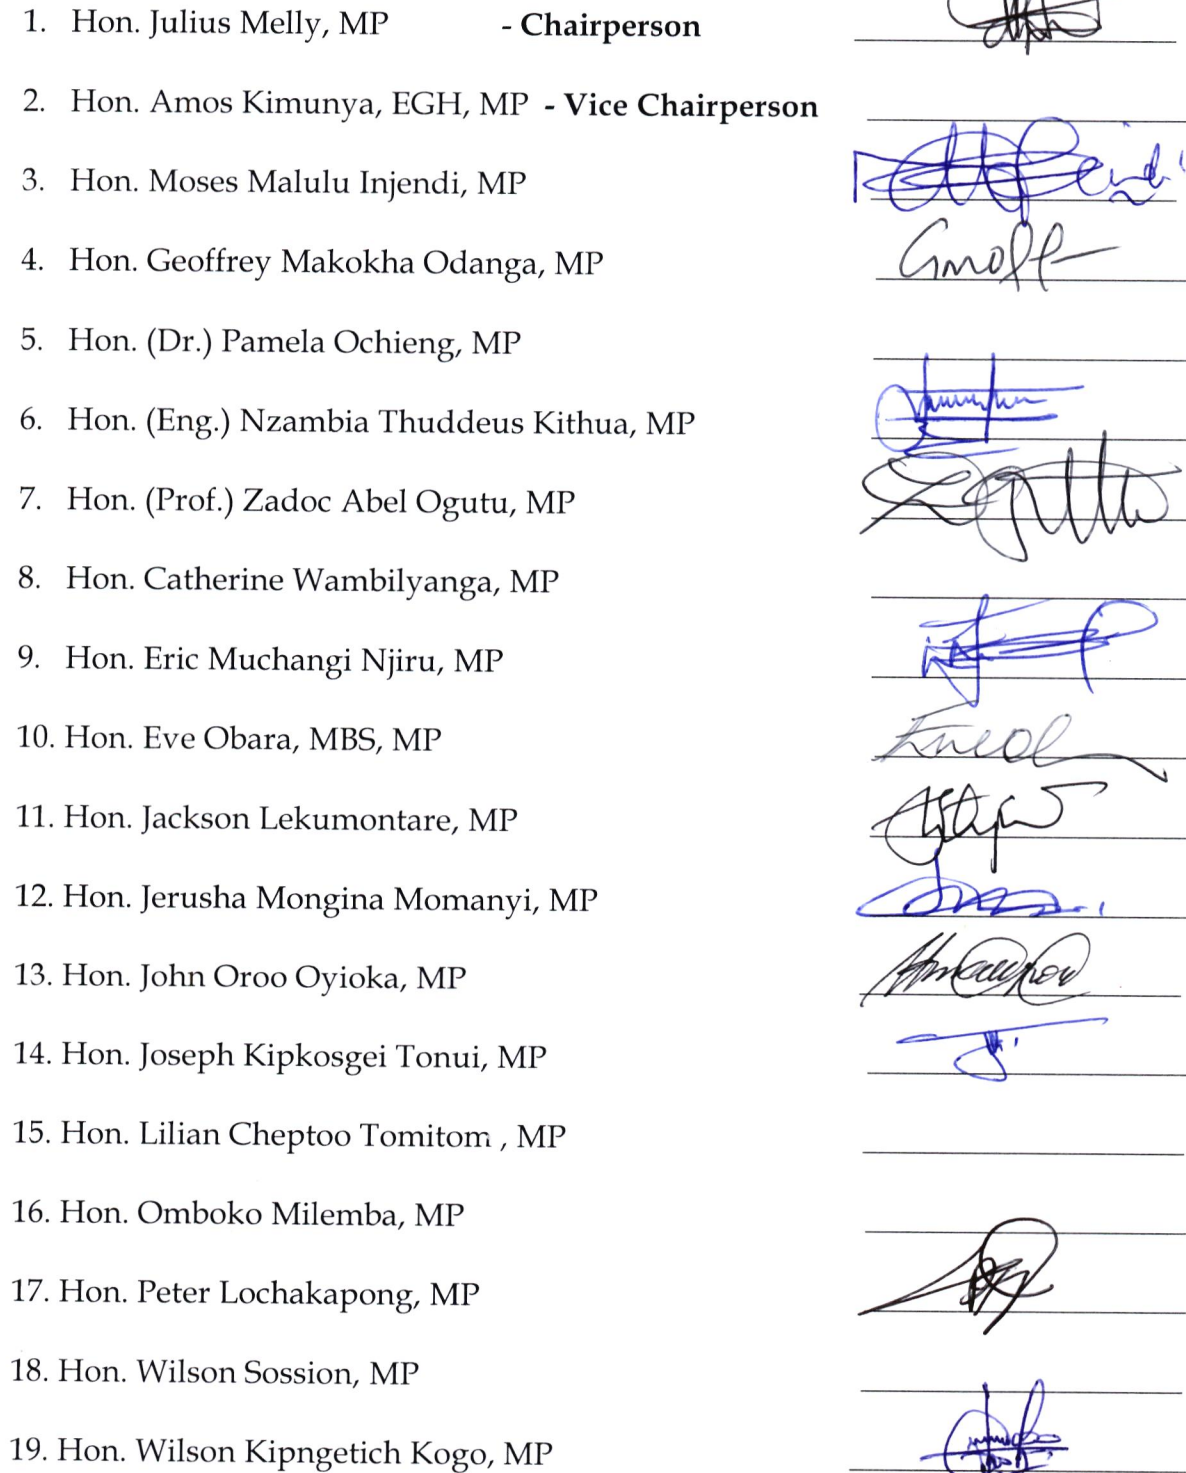 1. Hon. Julius Melly, MP - Chairperson
2. Hon. Amos Kimunya, EGH, MP - Vice Chairperson
3. Hon. Moses Malulu Injendi, MP
4. Hon. Geoffrey Makokha Odanga, MP
5. Hon. (Dr.) Pamela Ochieng, MP
6. Hon. (Eng.) Nzambia Thuddeus Kithua, MP
7. Hon. (Prof.) Zadoc Abel Ogutu, MP
8. Hon. Catherine Wambilyanga, MP
9. Hon. Eric Muchangi Njiru, MP
10. Hon. Eve Obara, MBS, MP
11. Hon. Jackson Lekumontare, MP
12. Hon. Jerusha Mongina Momanyi, MP
13. Hon. John Oroo Oyioka, MP
14. Hon. Joseph Kipkosgei Tonui, MP
15. Hon. Lilian Cheptoo Tomitom , MP
16. Hon. Omboko Milemba, MP
17. Hon. Peter Lochakapong, MP
18. Hon. Wilson Sossion, MP
19. Hon. Wilson Kipngetich Kogo, MP